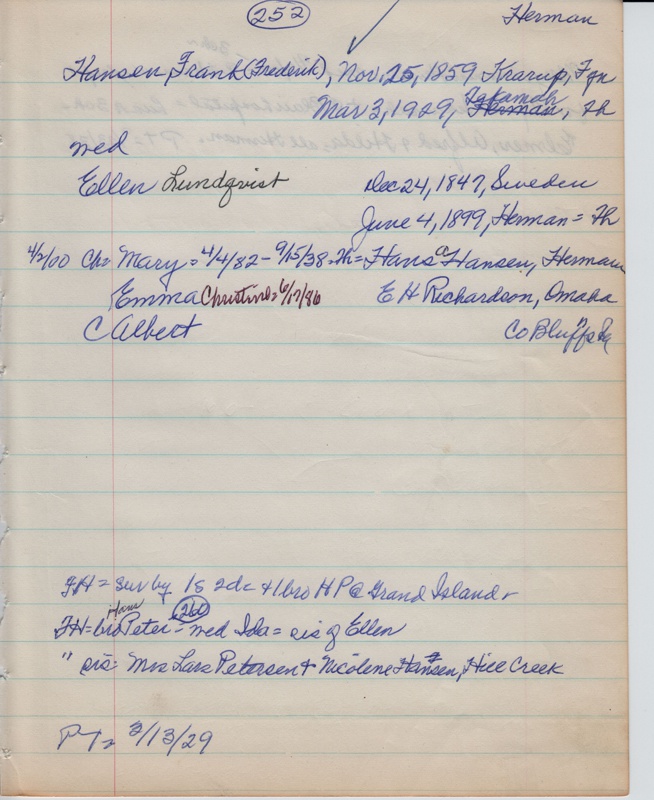 252 Herman
Hansen, Frank (Frederik), Nov. 25, 1859 Krarup, Fyn
Tekamah
Mar 3, 1929, Herman, Th
med
Ellen Lundqvist Dec 24, 1847, Sweden
June 4, 1899, Herman = Th
4/2/00 Ch = Mary = 4/4/82 - 9/15/38 = Th = Hans C Hansen, Herman
Emma Christine = 6/17/86 E H Richardson, Omaha
C Albert Co Bluffs Ia
FH = sur by 1s 2da + 1 bro HP @ Grand Island
Hans 260
FH = bro Peter = med Ida = sis of Ellen
" sis = Mrs Lars Petersen + Nicolene Hansen, Hill Creek
PT = 3/13/29